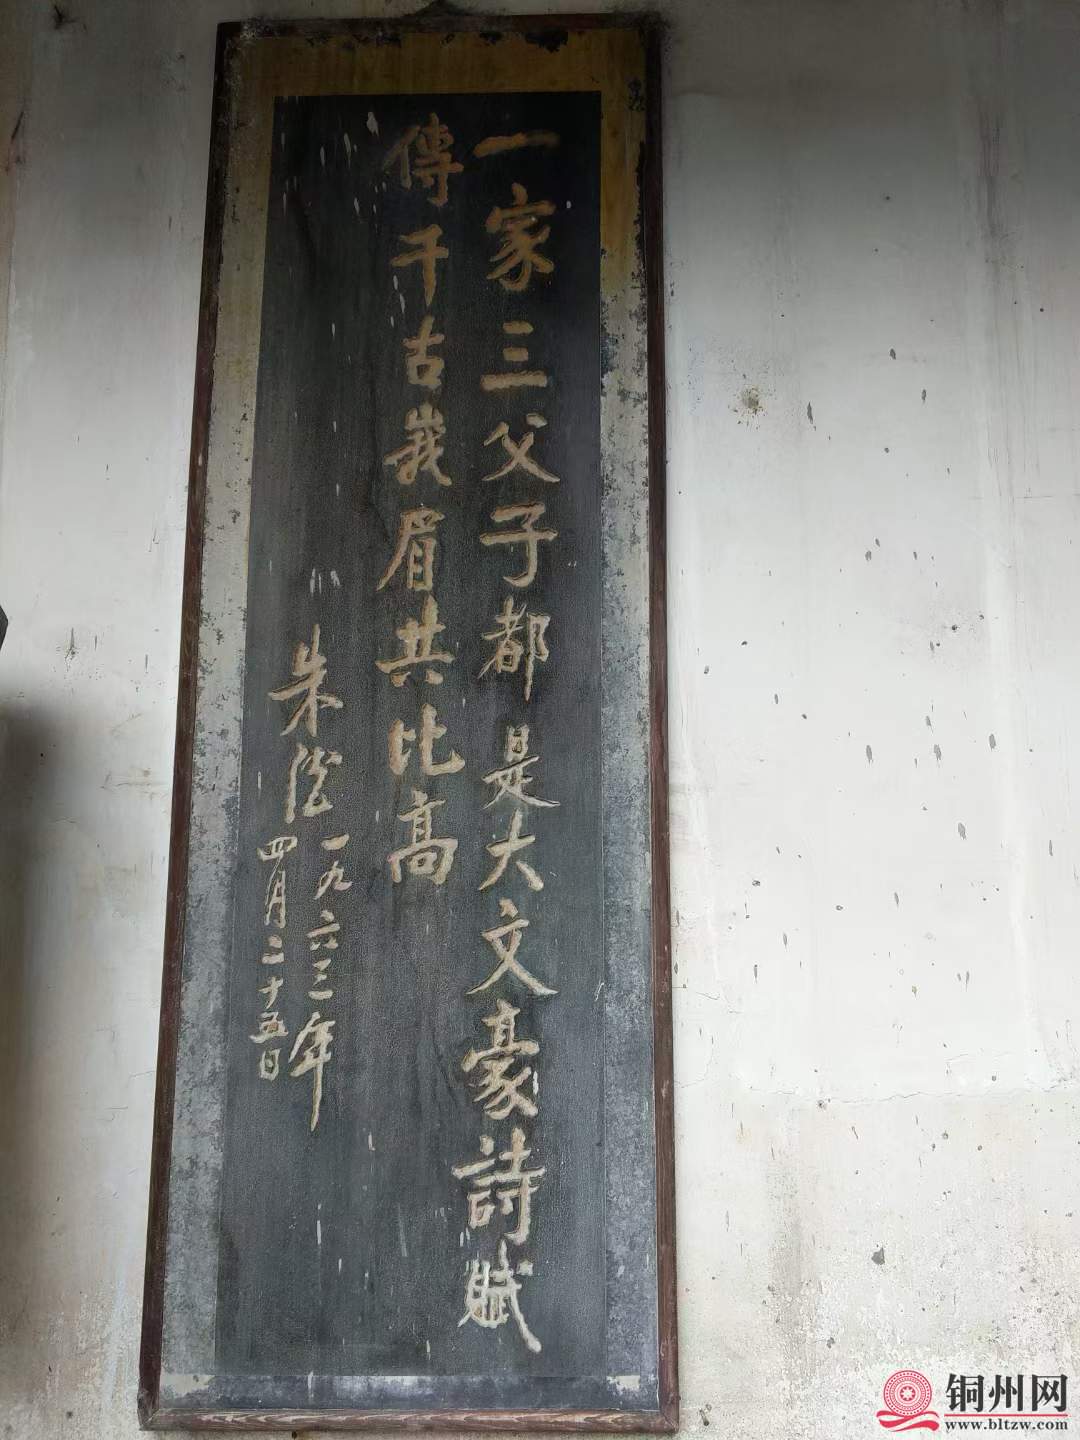 一家三父子都是大文豪詩賦
傳千古峩眉共比高
朱德
一九六三年
四月二十五日
铜州网
www.bltzw.com